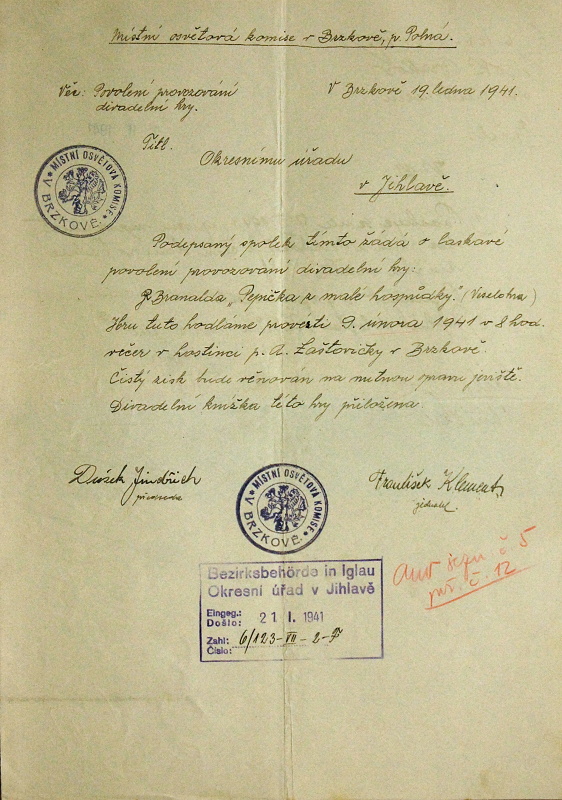 Místní osvětová komise v Brzkově, p. Polná.
Věc: Povolení provozování
divadelní hry.
V Brzkově 19. ledna 1941.
Titl.
Okresnímu úřadu
v Jihlavě.
MÍSTNÍ OSVĚTOVÁ KOMISE V BRZKOVĚ
Podepsaný spolek tímto žádá o laskavé
povolení provozování divadelní hry:
R. Branalda „Pepička z malé hospůdky.“ (Veselohra)
Hru tuto hodláme provésti 9. února 1941 v 8 hod.
večer v hostinci p. A. Laštovičky v Brzkově.
Čistý zisk bude věnován na nutnou spravu jeviště.
Divadelní knížka této hry přiložena.
Jindřich
předseda
František Klement
jednatel
MÍSTNÍ OSVĚTOVÁ KOMISE V BRZKOVĚ
Bezirksbehörde in Iglau
Okresní úřad v Jihlavě
Eingeg.:
Došlo: 21 I. 1941
Zahl:
Číslo: 6/123-VII-2-
č 5
č. 12